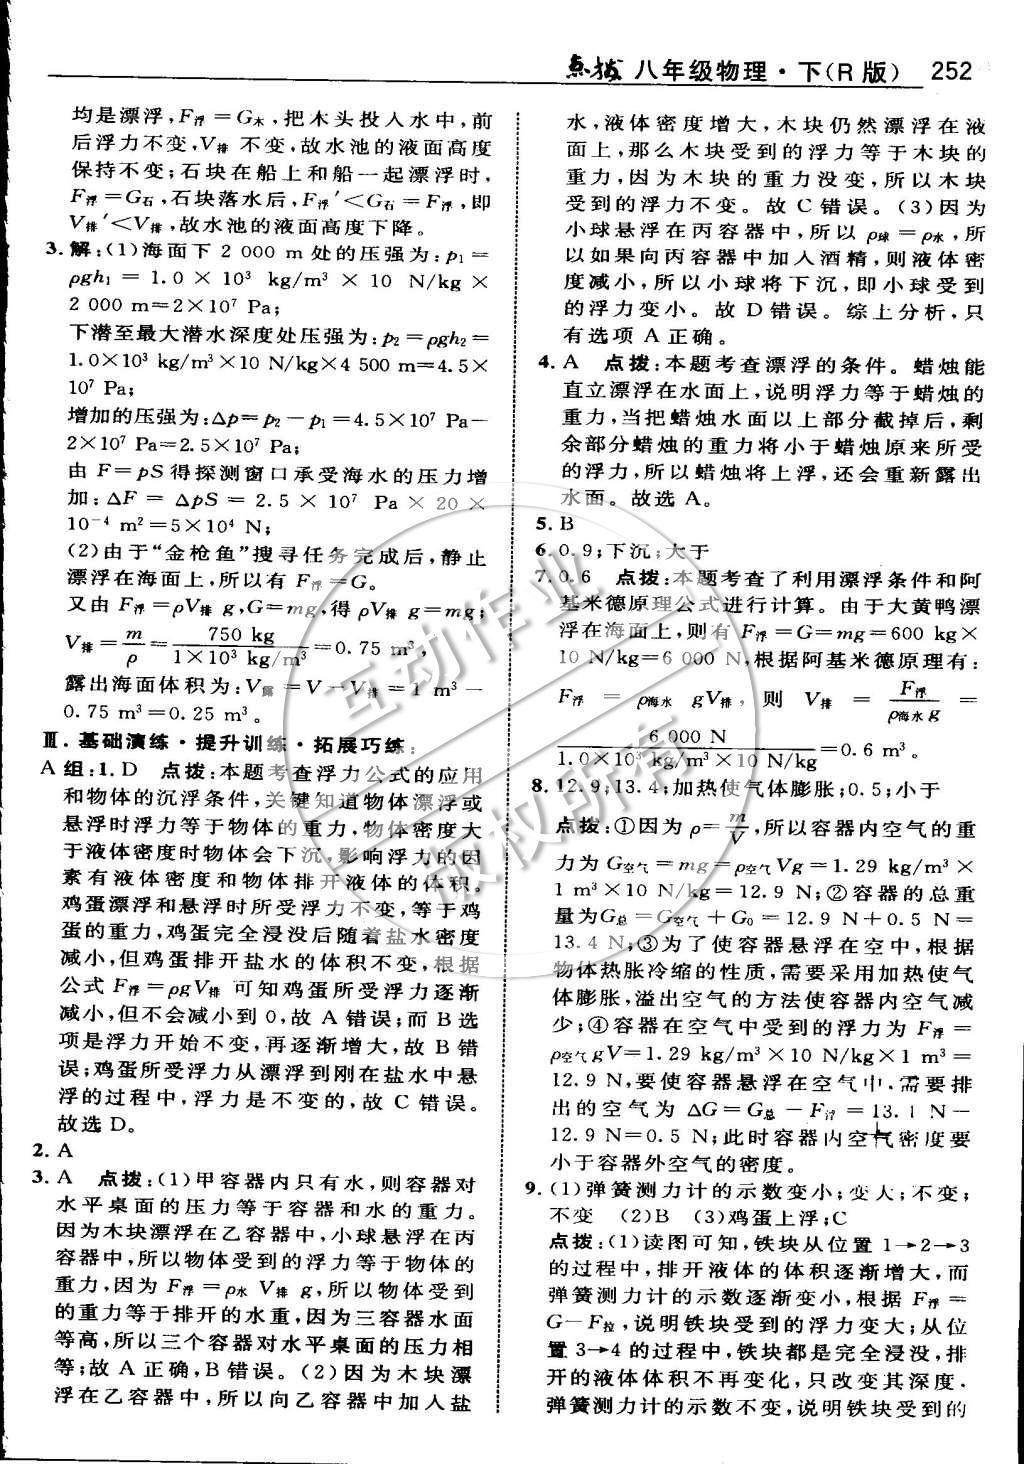 点拨 八年级物理·下(R版) 252
均是漂浮,F浮=G木,把木头投入水中,前
后浮力不变,V排 不变,故水池的液面高度
保持不变;石块在船上和船一起漂浮时,
F浮=G石,石块落水后,F浮′<G石=F浮,即
V排′<V排,故水池的液面高度下降。
3. 解:(1)海面下 2 000 m处的压强为:p1=
ρgh1 = 1.0 × 10³ kg/m³ × 10 N/kg ×
2 000 m=2×10⁷ Pa;
下潜至最大潜水深度处压强为:p2=ρgh2=
1.0×10³ kg/m³×10 N/kg×4 500 m=4.5×
10⁷ Pa;
增加的压强为:Δp=p2-p1=4.5×10⁷ Pa-
2×10⁷ Pa=2.5×10⁷ Pa;
由 F=pS得探测窗口承受海水的压力增
加:ΔF = ΔpS = 2.5 × 10⁷ Pa × 20 ×
10⁻⁴ m²=5×10⁴ N;
(2)由于“金枪鱼”搜寻任务完成后,静止
漂浮在海面上,所以有 F浮=G。
又由 F浮=ρV排 g,G=mg,得 ρV排 g=mg;
V排=m/ρ=750 kg/(1×10³ kg/m³)=0.75 m³,
露出海面体积为:V露=V-V排=1 m³-
0.75 m³=0.25 m³。
Ⅲ. 基础演练·提升训练·拓展巧练:
A 组:1. D 点拨:本题考查浮力公式的应用
和物体的沉浮条件,关键知道物体漂浮或
悬浮时浮力等于物体的重力,物体密度大
于液体密度时物体会下沉,影响浮力的因
素有液体密度和物体排开液体的体积。
鸡蛋漂浮和悬浮时所受浮力不变,等于鸡
蛋的重力,鸡蛋完全浸没后随着盐水密度
减小,但鸡蛋排开盐水的体积不变,根据
公式 F浮=ρgV排 可知鸡蛋所受浮力逐渐
减小,但不会减小到0,故 A 错误;而 B 选
项是浮力开始不变,再逐渐增大,故 B 错
误;鸡蛋所受浮力从漂浮到刚在盐水中悬
浮的过程中,浮力是不变的,故 C 错误。
故选 D。
2. A
3. A 点拨:(1)甲容器内只有水,则容器对
水平桌面的压力等于容器和水的重力。
因为木块漂浮在乙容器中,小球悬浮在丙
容器中,所以物体受到的浮力等于物体的
重力,因为 F浮=ρ水 V排 g,所以物体受到
的重力等于排开的水重,因为三容器水面
等高,所以三个容器对水平桌面的压力相
等;故 A 正确,B 错误。(2)因为木块漂
浮在乙容器中,所以向乙容器中加入盐
水,液体密度增大,木块仍然漂浮在液
面上,那么木块受到的浮力等于木块的
重力,因为木块的重力没变,所以木块
受到的浮力不变。故 C 错误。(3)因为
小球悬浮在丙容器中,所以 ρ球=ρ水,所
以如果向丙容器中加入酒精,则液体密
度减小,所以小球将下沉,即小球受到
的浮力变小。故 D 错误。综上分析,只
有选项 A 正确。
4. A 点拨:本题考查漂浮的条件。蜡烛能
直立漂浮在水面上,说明浮力等于蜡烛的
重力,当把蜡烛水面以上部分截掉后,剩
余部分蜡烛的重力将小于蜡烛原来所受
的浮力,所以蜡烛将上浮,还会重新露出
水面。故选 A。
5. B
6. 0.9;下沉;大于
7. 0.6 点拨:本题考查了利用漂浮条件和阿
基米德原理公式进行计算。由于大黄鸭漂
浮在海面上,则有 F浮=G=mg=600 kg×
10 N/kg=6 000 N,根据阿基米德原理有:
F浮 = ρ海水 gV排, 则 V排 = F浮/(ρ海水 g) =
6 000 N/(1.0×10³ kg/m³×10 N/kg)=0.6 m³。
8. 12.9;13.4;加热使气体膨胀;0.5;小于
点拨:①因为 ρ=m/V,所以容器内空气的重
力为 G空气=mg=ρ空气Vg=1.29 kg/m³×
1 m³×10 N/kg=12.9 N;②容器的总重
量为G总=G空气+G0=12.9 N+0.5 N=
13.4 N;③为了使容器悬浮在空中,根据
物体热胀冷缩的性质,需要采用加热使气
体膨胀,溢出空气的方法使容器内空气减
少;④容器在空气中受到的浮力为 F浮=
ρ空气gV=1.29 kg/m³×10 N/kg×1 m³=
12.9 N,要使容器悬浮在空气中,需要排
出的空气为 ΔG=G总-F浮=13.1 N-
12.9 N=0.5 N;此时容器内空气密度要
小于容器外空气的密度。
9. (1)弹簧测力计的示数变小;变大;不变;
不变 (2)B (3)鸡蛋上浮;C
点拨:(1)读图可知,铁块从位置 1→2→3
的过程中,排开液体的体积逐渐增大,而
弹簧测力计的示数逐渐变小,根据 F浮=
G-F拉,说明铁块受到的浮力变大;从位
置 3→4 的过程中,铁块都是完全浸没,排
开的液体体积不再变化,只改变其深度.
弹簧测力计的示数不变,说明铁块受到的
互动作业
版权所有